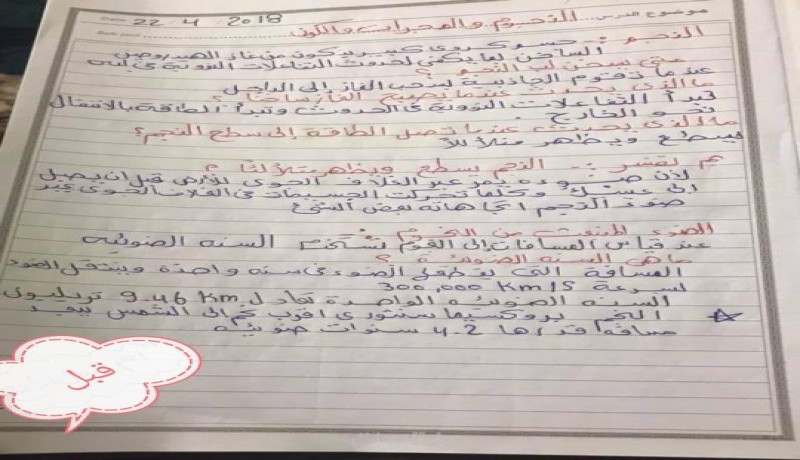 موضوع الدرس: النجوم والمجرات والكون
Date 22 / 4 / 2018
النجم :- جسم كروي كبير يتكون من غاز الهيدروجين
الساخن لما يكفي لحدوث التفاعلات النووية في لبه
متى يسخن لب النجم ؟
عندما تقوم الجاذبية بسحب الغاز إلى الداخل
ما الذي يحدث عندما يصبح الغاز ساخناً ؟
تبدأ التفاعلات النووية في الحدوث وتبدأ الطاقة بالانتقال
نحو الخارج .
ما الذي يحدث عندما تصل الطاقة إلى سطح النجم؟
يسطع ويظهر متلألأ
بم تفسر :- النجم يسطع ويظهر متلألئاً ؟
لأن ضوءه يمر عبر الغلاف الجوي للأرض قبل ان يصل
الى عينك وكلما تحركت الجسيمات في الغلاف الجوي غير
ضوء النجم اتجاهاته بعض الشيء
الضوء المنبعث من النجوم
عند قياس المسافات إلى النجوم نستخدم السنه الضوئيه
ما هي السنه الضوئية ؟
المسافة التي يقطعها الضوء في سنه واحدة وينتقل الضوء
بسرعة 300,000 Km/S
السنه الضوئيه الواحدة تعادل 9.46 Km تريليون
☆ النجم بروكسيما سنتوري اقرب نجم إلى الشمس يبعد
مسافة قدرها 4.2 سنوات ضوئيه
قبل